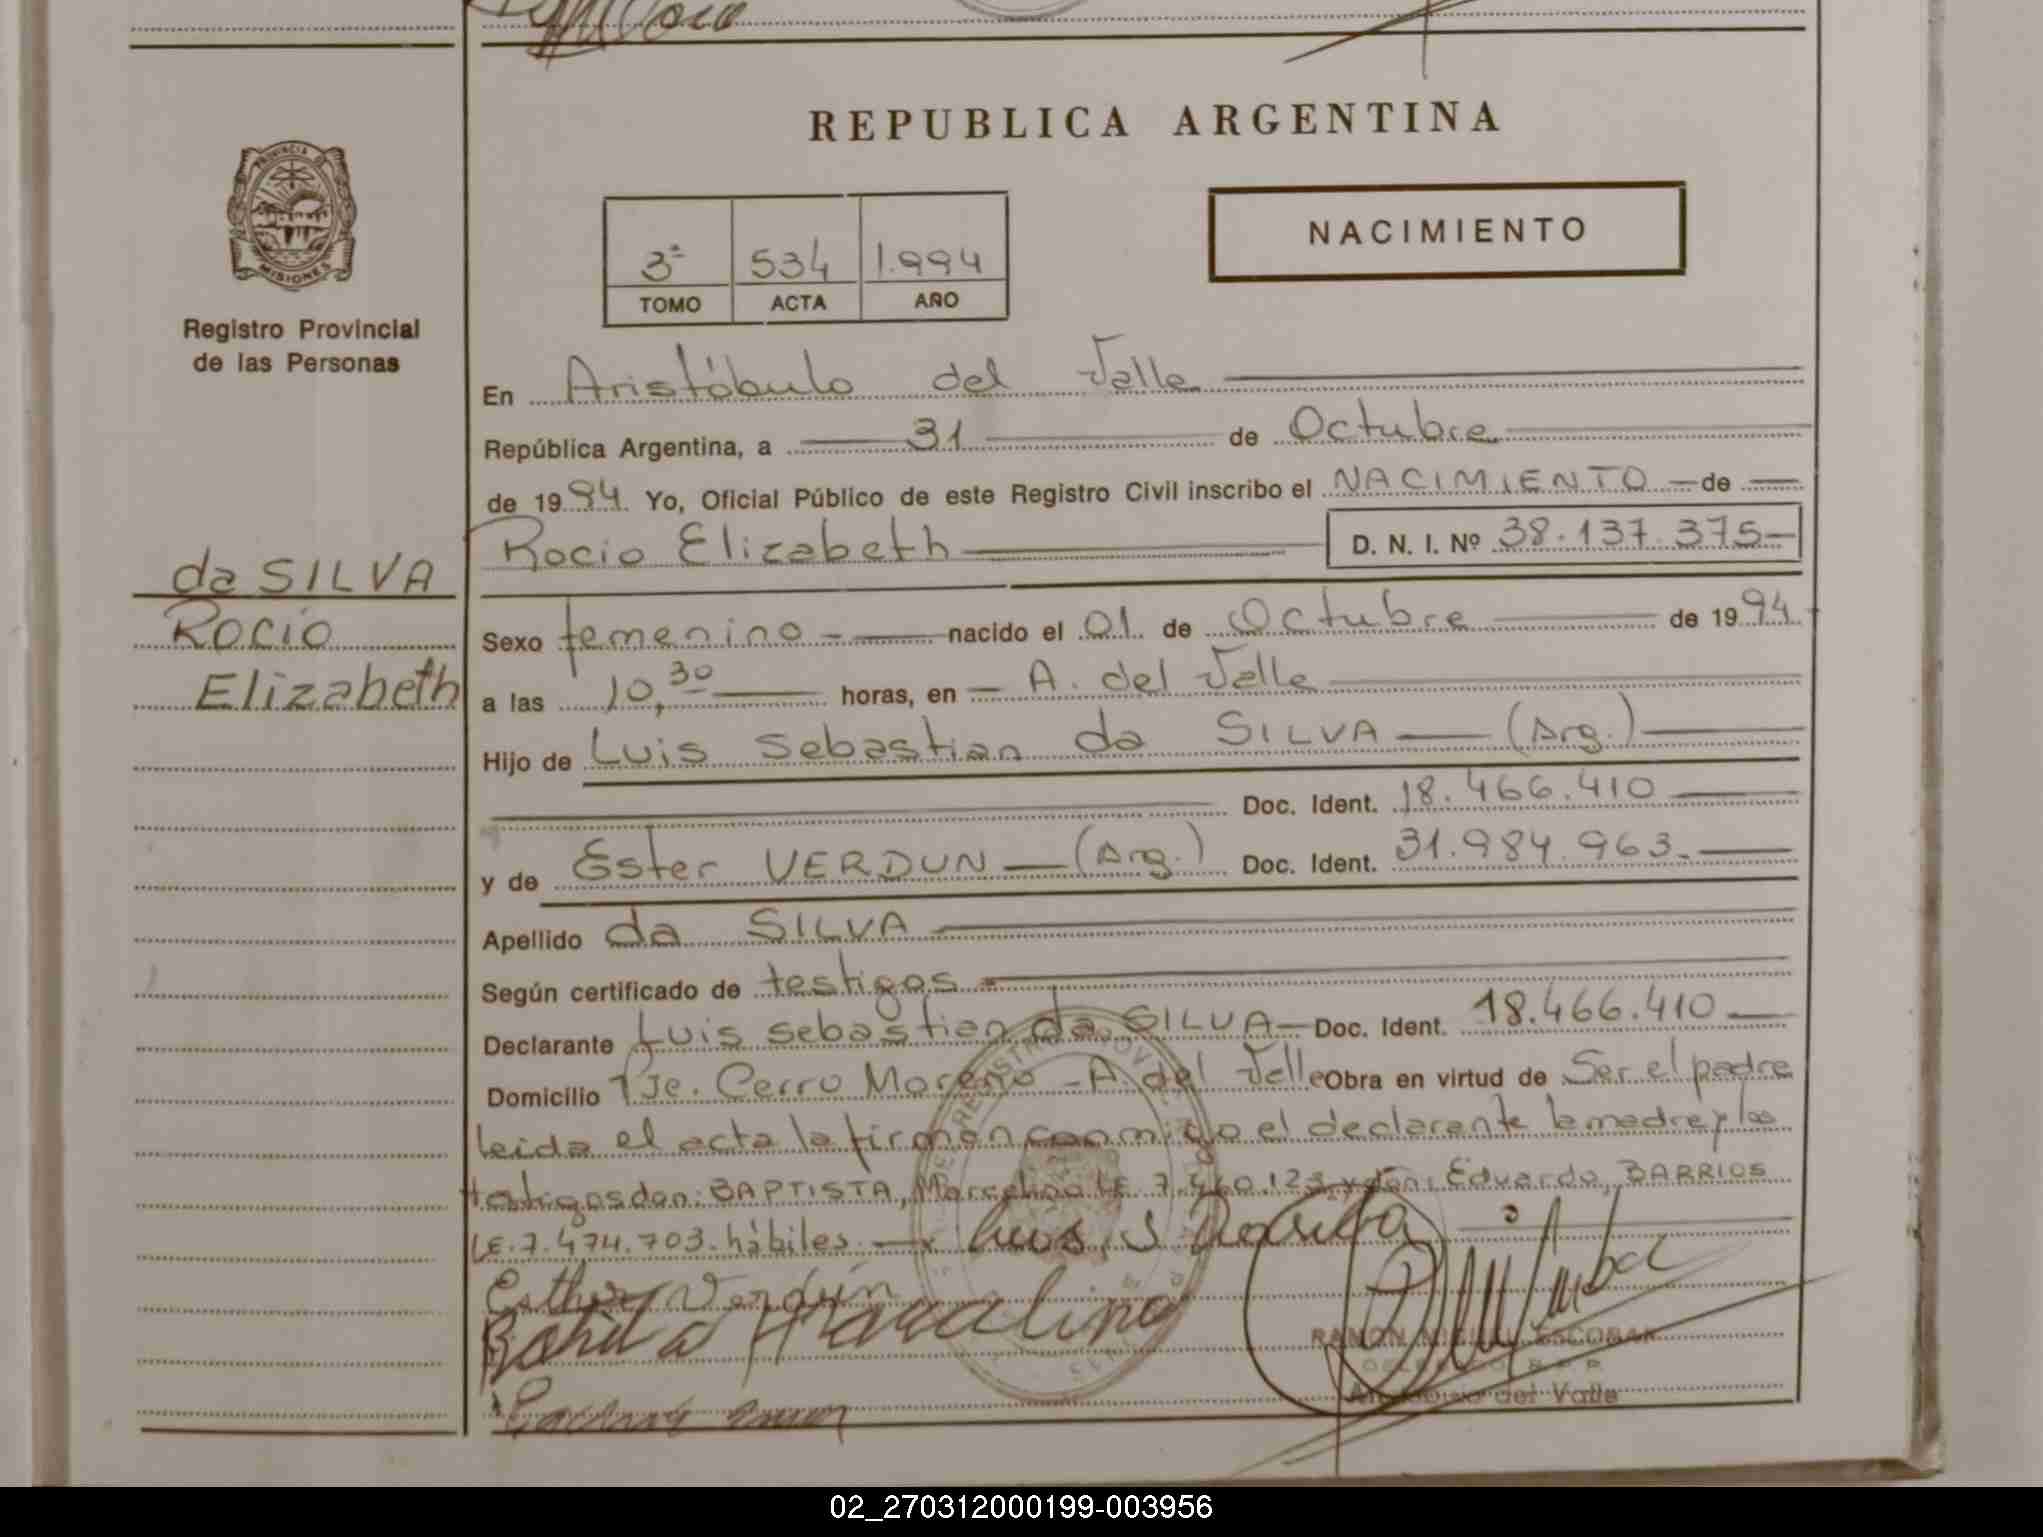 REPUBLICA ARGENTINA
PROVINCIA DE
MISIONES
Registro Provincial
de las Personas
NACIMIENTO
3ª 534 1.994
TOMO ACTA AÑO
da SILVA
Rocio
Elizabeth
En Aristóbulo del Valle
República Argentina, a 31 de Octubre
de 1994. Yo, Oficial Público de este Registro Civil inscribo el NACIMIENTO - de
Rocio Elizabeth D. N. I. Nº 38.137.375-
Sexo femenino - nacido el 01 de Octubre de 1994
a las 10,30 horas, en - A. del Valle
Hijo de Luis Sebastian da SILVA - (Arg.)
Doc. Ident. 18.466.410
y de Ester VERDUN - (Arg.) Doc. Ident. 31.984.963.-
Apellido da SILVA
Según certificado de testigos
Declarante Luis Sebastian da SILVA - Doc. Ident. 18.466.410
Domicilio Pje. Cerro Moreno - A. del Valle Obra en virtud de Ser el padre
leida el acta la firman conmigo el declarante la madre y los
testigos don: BAPTISTA, Marcelino LE. 7.460.123 y don: Eduardo, BARRIOS
LE. 7.474.703. hábiles. -
Luis S Dasilva
Esther Verdún
Marcelino
RAMON MIGUEL ESCOBAR
DELEGADO R.P.P.
Aristobulo del Valle
02_270312000199-003956